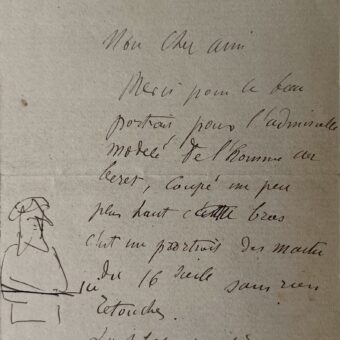 Mon cher ami
Merci pour le beau
portrait, pour l'admirable
modelé de l'homme au
beret, coupé un peu
plus haut cette bras
c'est un portrait des maitres
du 16 siecle sans rien
retoucher.